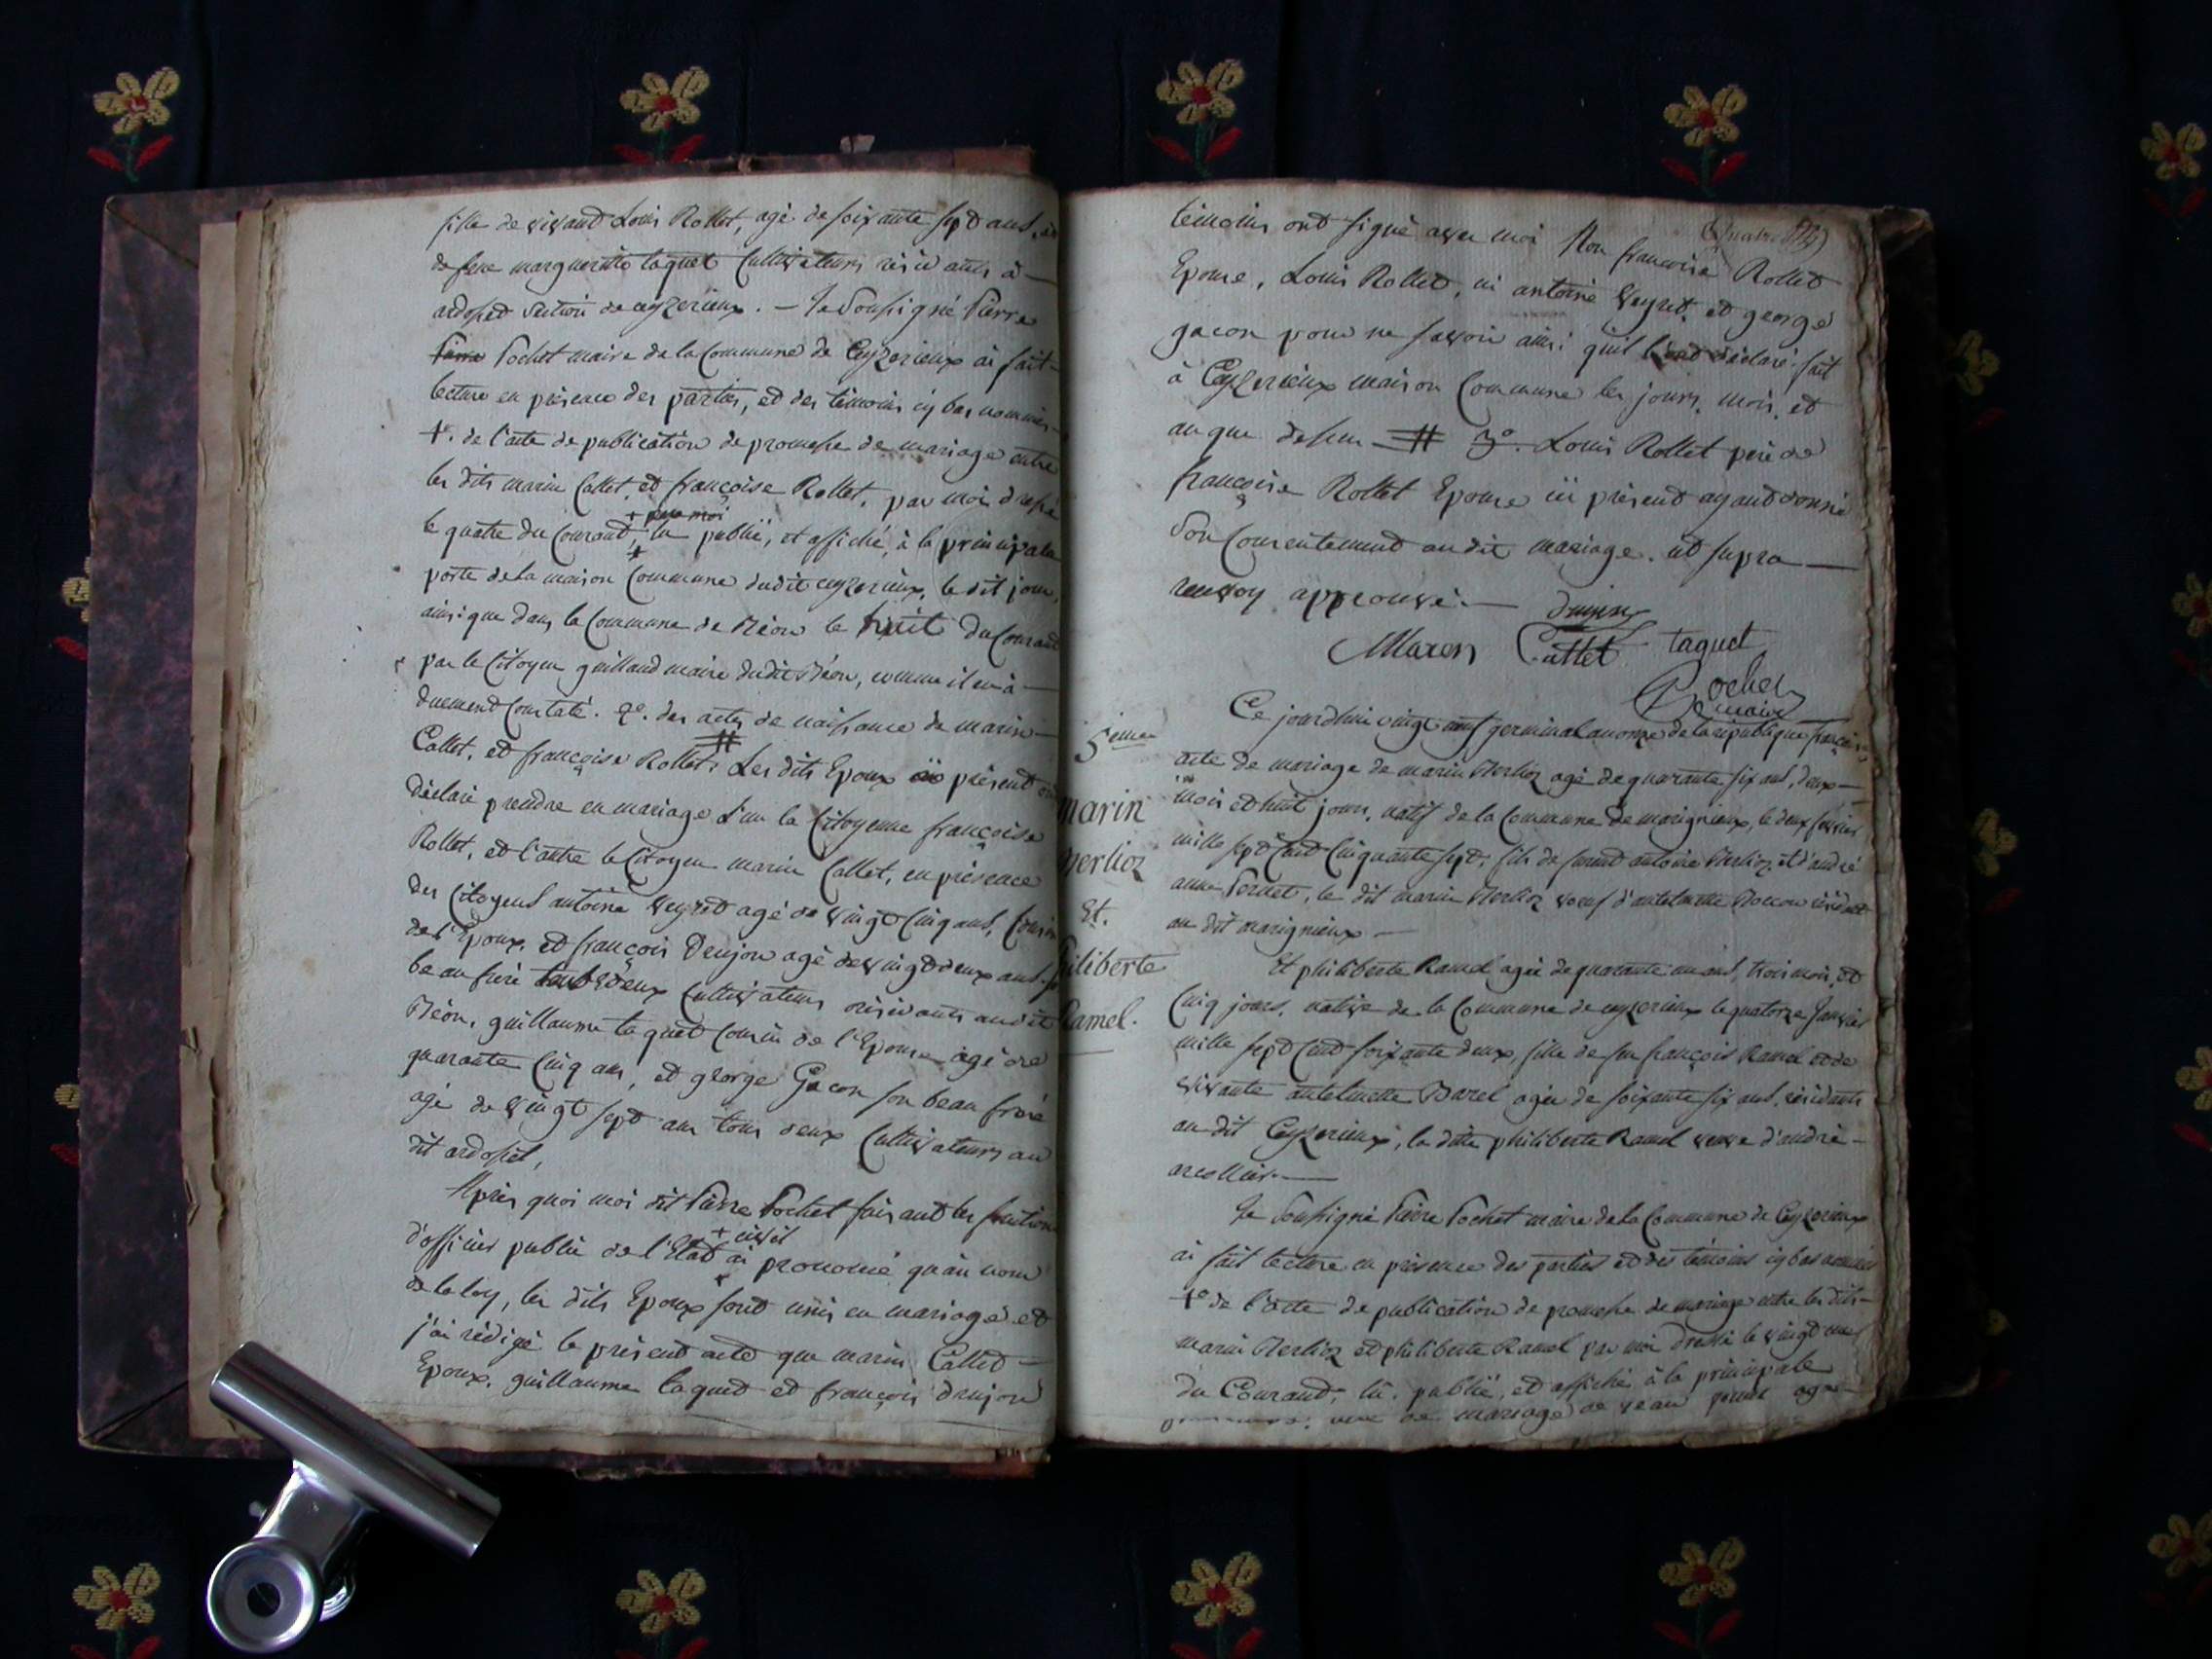 fille de vivand Louis Rollet, agé de soixante sept ans, et
de feue marguerite taquet Cultivateurs résidants à
ardosset section de ceyzerieux. — Je soussigné Pierre
Pierre Pochet maire de la Commune de Ceyzerieux ai fait
lecture en présence des parties, et des témoins cy bas nommés
1°. de l'acte de publication de promesse de mariage entre
les dits marin Callet, et françoise Rollet, par moi dressé
+ par moi
le quatre du Courant, lu publié, et affiché, à la principale
porte de la maison Commune dudit ceyzerieux, le dit jour,
ainsi que dans la Commune de Béon le huit du Courant
par le Citoyen guilland maire dudit Béon, comme il en à
duement Constaté. 2°. des actes de naissance de marin
Callet, et françoise Rollet; Les dits Epoux ici présent ont
déclaré prendre en mariage L'un la Citoyenne françoise
Rollet, et l'autre le Citoyen marin Callet, en présence
des Citoyens antoine Veyret agé de vingt Cinq ans, Cousin
de l'Epoux, et françois Drujon agé de vingt deux ans. son
beau frère tous deux Cultivateurs résidants audit
Béon, guillaume taquet Cousin de l'Epouse agé de
quarante Cinq ans, et george Gacon son beau frère
agé de vingt sept ans tous deux Cultivateurs au
dit ardosset,
Après quoi moi dit Pierre Pochet faisant les fonctions
+ civil
d'officier public de l'Etat ai prononcé qu'au nom
de la loy, les dits Epoux sont unis en mariage et
j'ai rédigé le présent acte que marin Callet
Epoux, guillaume taquet et françois drujon
témoins ont signé avec moi Non francoise Rollet
Epouse, Louis Rollet, ni antoine Veyret, et george
gacon pour ne savoir ainsi qu'il l'ont déclaré. fait
à Ceyzerieux maison Commune les jours, mois, et
an que dessus # 3°. Louis Rollet père de
françoise Rollet Epouse ici présent ayant donné
son Consentement au dit mariage. ut supra
renvoy approuvé. — drujon
Maren Callet taquet
Pochet
maire
5eme
marin
Berlioz
Et.
philiberte
Ramel.
Ce jourdhui vingt neuf germinal an onze de la république françoise
acte de mariage de marin Berlioz agé de quarante six ans, deux
mois et huit jours, natif de la Commune de marignieux, le deux fevrier
mille sept Cent Cinquante sept, fils de antoine Berlioz, et
anne Pernet, le dit marin Berlioz veuf d'antelmette résidant
au dit marignieux —
Et philiberte Ramel agée de quarante un ans, trois mois, et
Cinq jours, native de la Commune de ceyzerieux le quatorze Janvier
mille sept Cent soixante deux, fille de feu françois Ramel et de
vivante antelmette Barel agée de soixante six ans, résidants
au dit Ceyzerieux, la dite philiberte Ramel veuve d'andré
arcollier. —
Je soussigné Pierre Pochet maire de la Commune de Ceyzerieux
ai fait lecture en présence des parties et des témoins cy bas nommés
1° de l'acte de publication de promesse de mariage entre les dits
marin Berlioz et philiberte Ramel par moi dressé le vingt un
du Courant, lu, publié, et affiché à la principale
de mariage de